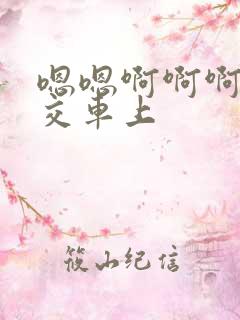 嗯嗯啊啊啊
交车上
筱山纪信